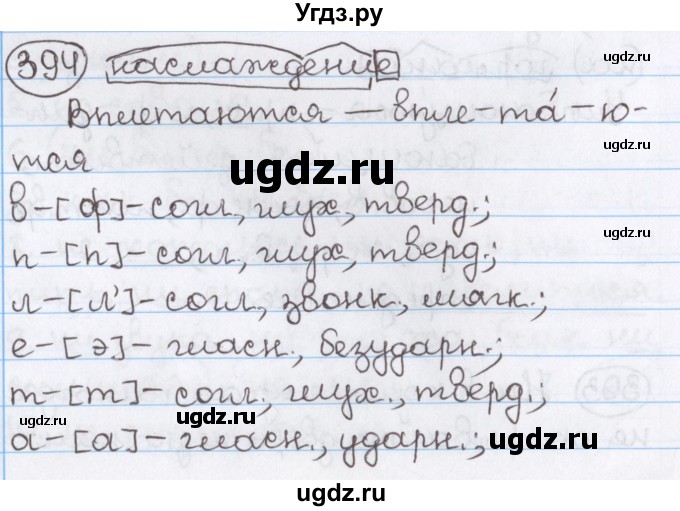 Угдз.ру
394 наслаждение
Вплетаются – впле-та́-ю-
тся
в-[ф]-согл., глух., тверд.;
п-[п]-согл., глух., тверд.;
л-[л']-согл., звонк., мягк.;
е-[э]-гласн., безударн.;
т-[т]-согл., глух., тверд.;
а-[а]-гласн., ударн.;
ugdz.ru
ugdz.ru
ugdz.ru
ugdz.ru
ugdz.ru
ugdz.ru
ugdz.ru
ugdz.ru
ugdz.ru